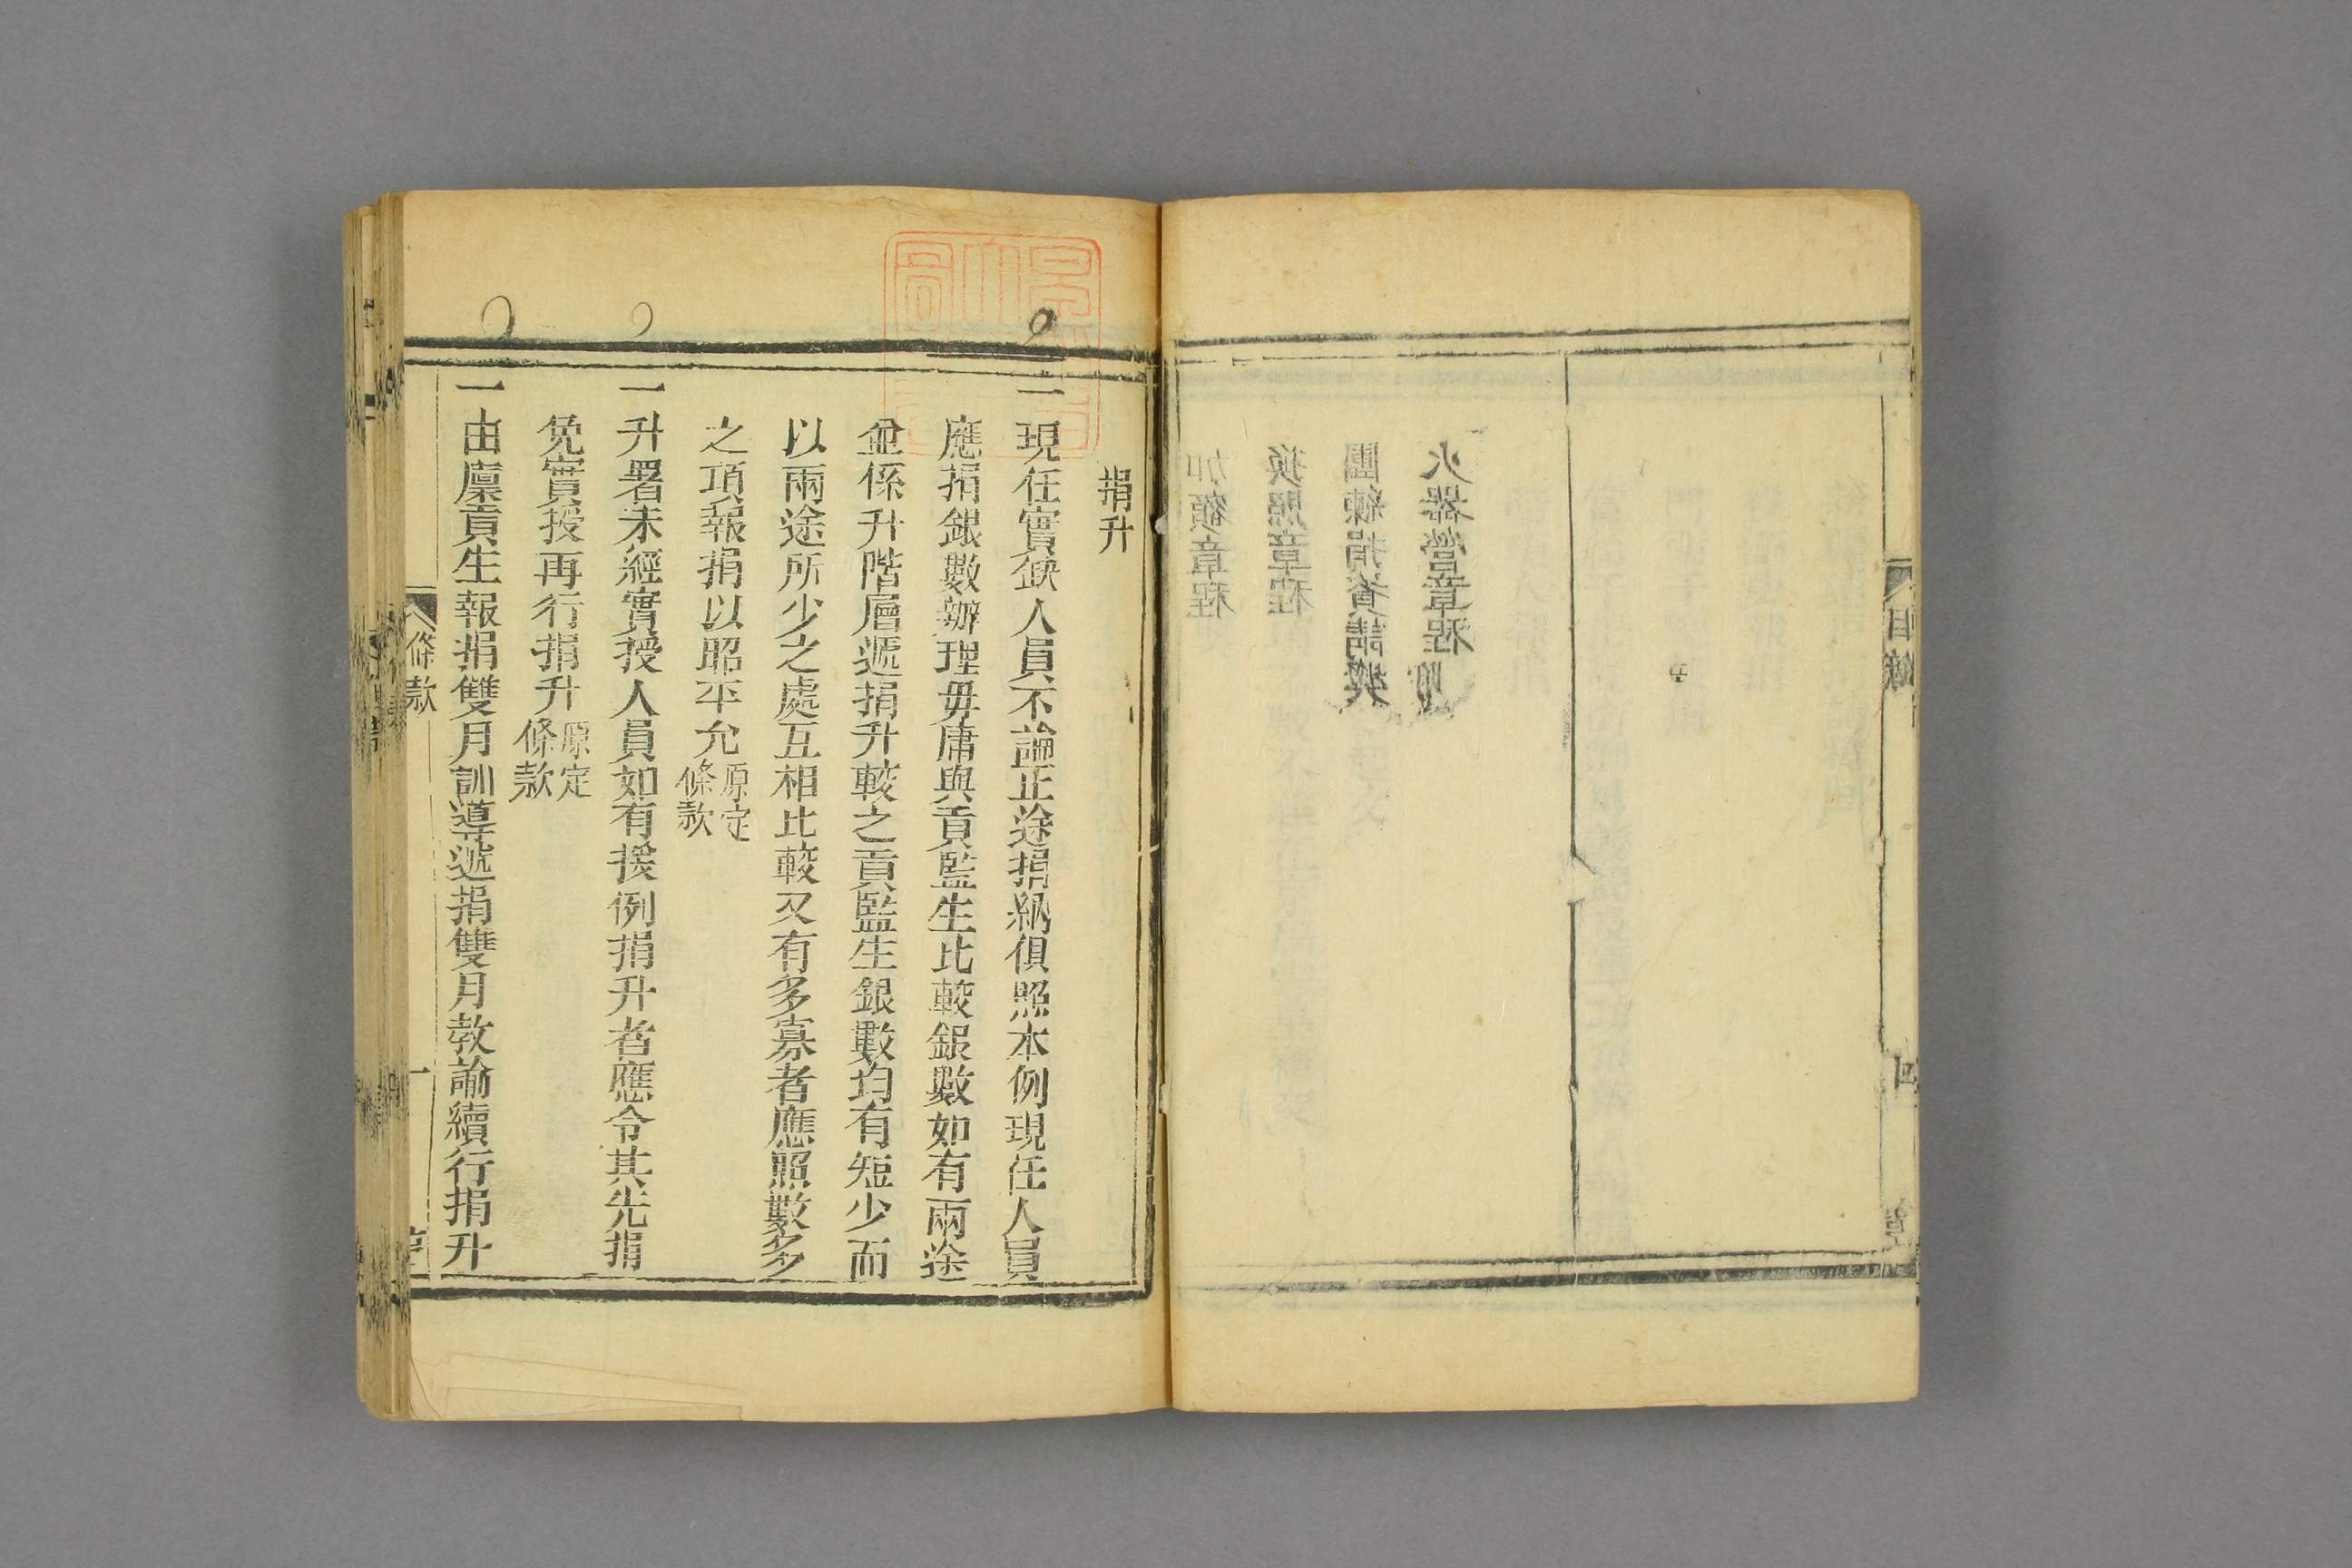 加額章程
換照章程
團練捐省請獎
火器營章程
目錄
四
捐升
一現任實缺人員不論正途捐納俱照本例現任人員
應捐銀數辦理毋庸與貢監生比較銀數如有兩途
並係升階層遞捐升較之貢監生銀數均有短少而
以兩途所少之處互相比較又有多寡者應照數多
之項報捐以昭平允原定條款
一升署未經實授人員如有援例捐升者應令其先捐
免實授再行捐升原定條款
一由廪貢生報捐雙月訓導遞捐雙月教諭續行捐升
條款
一